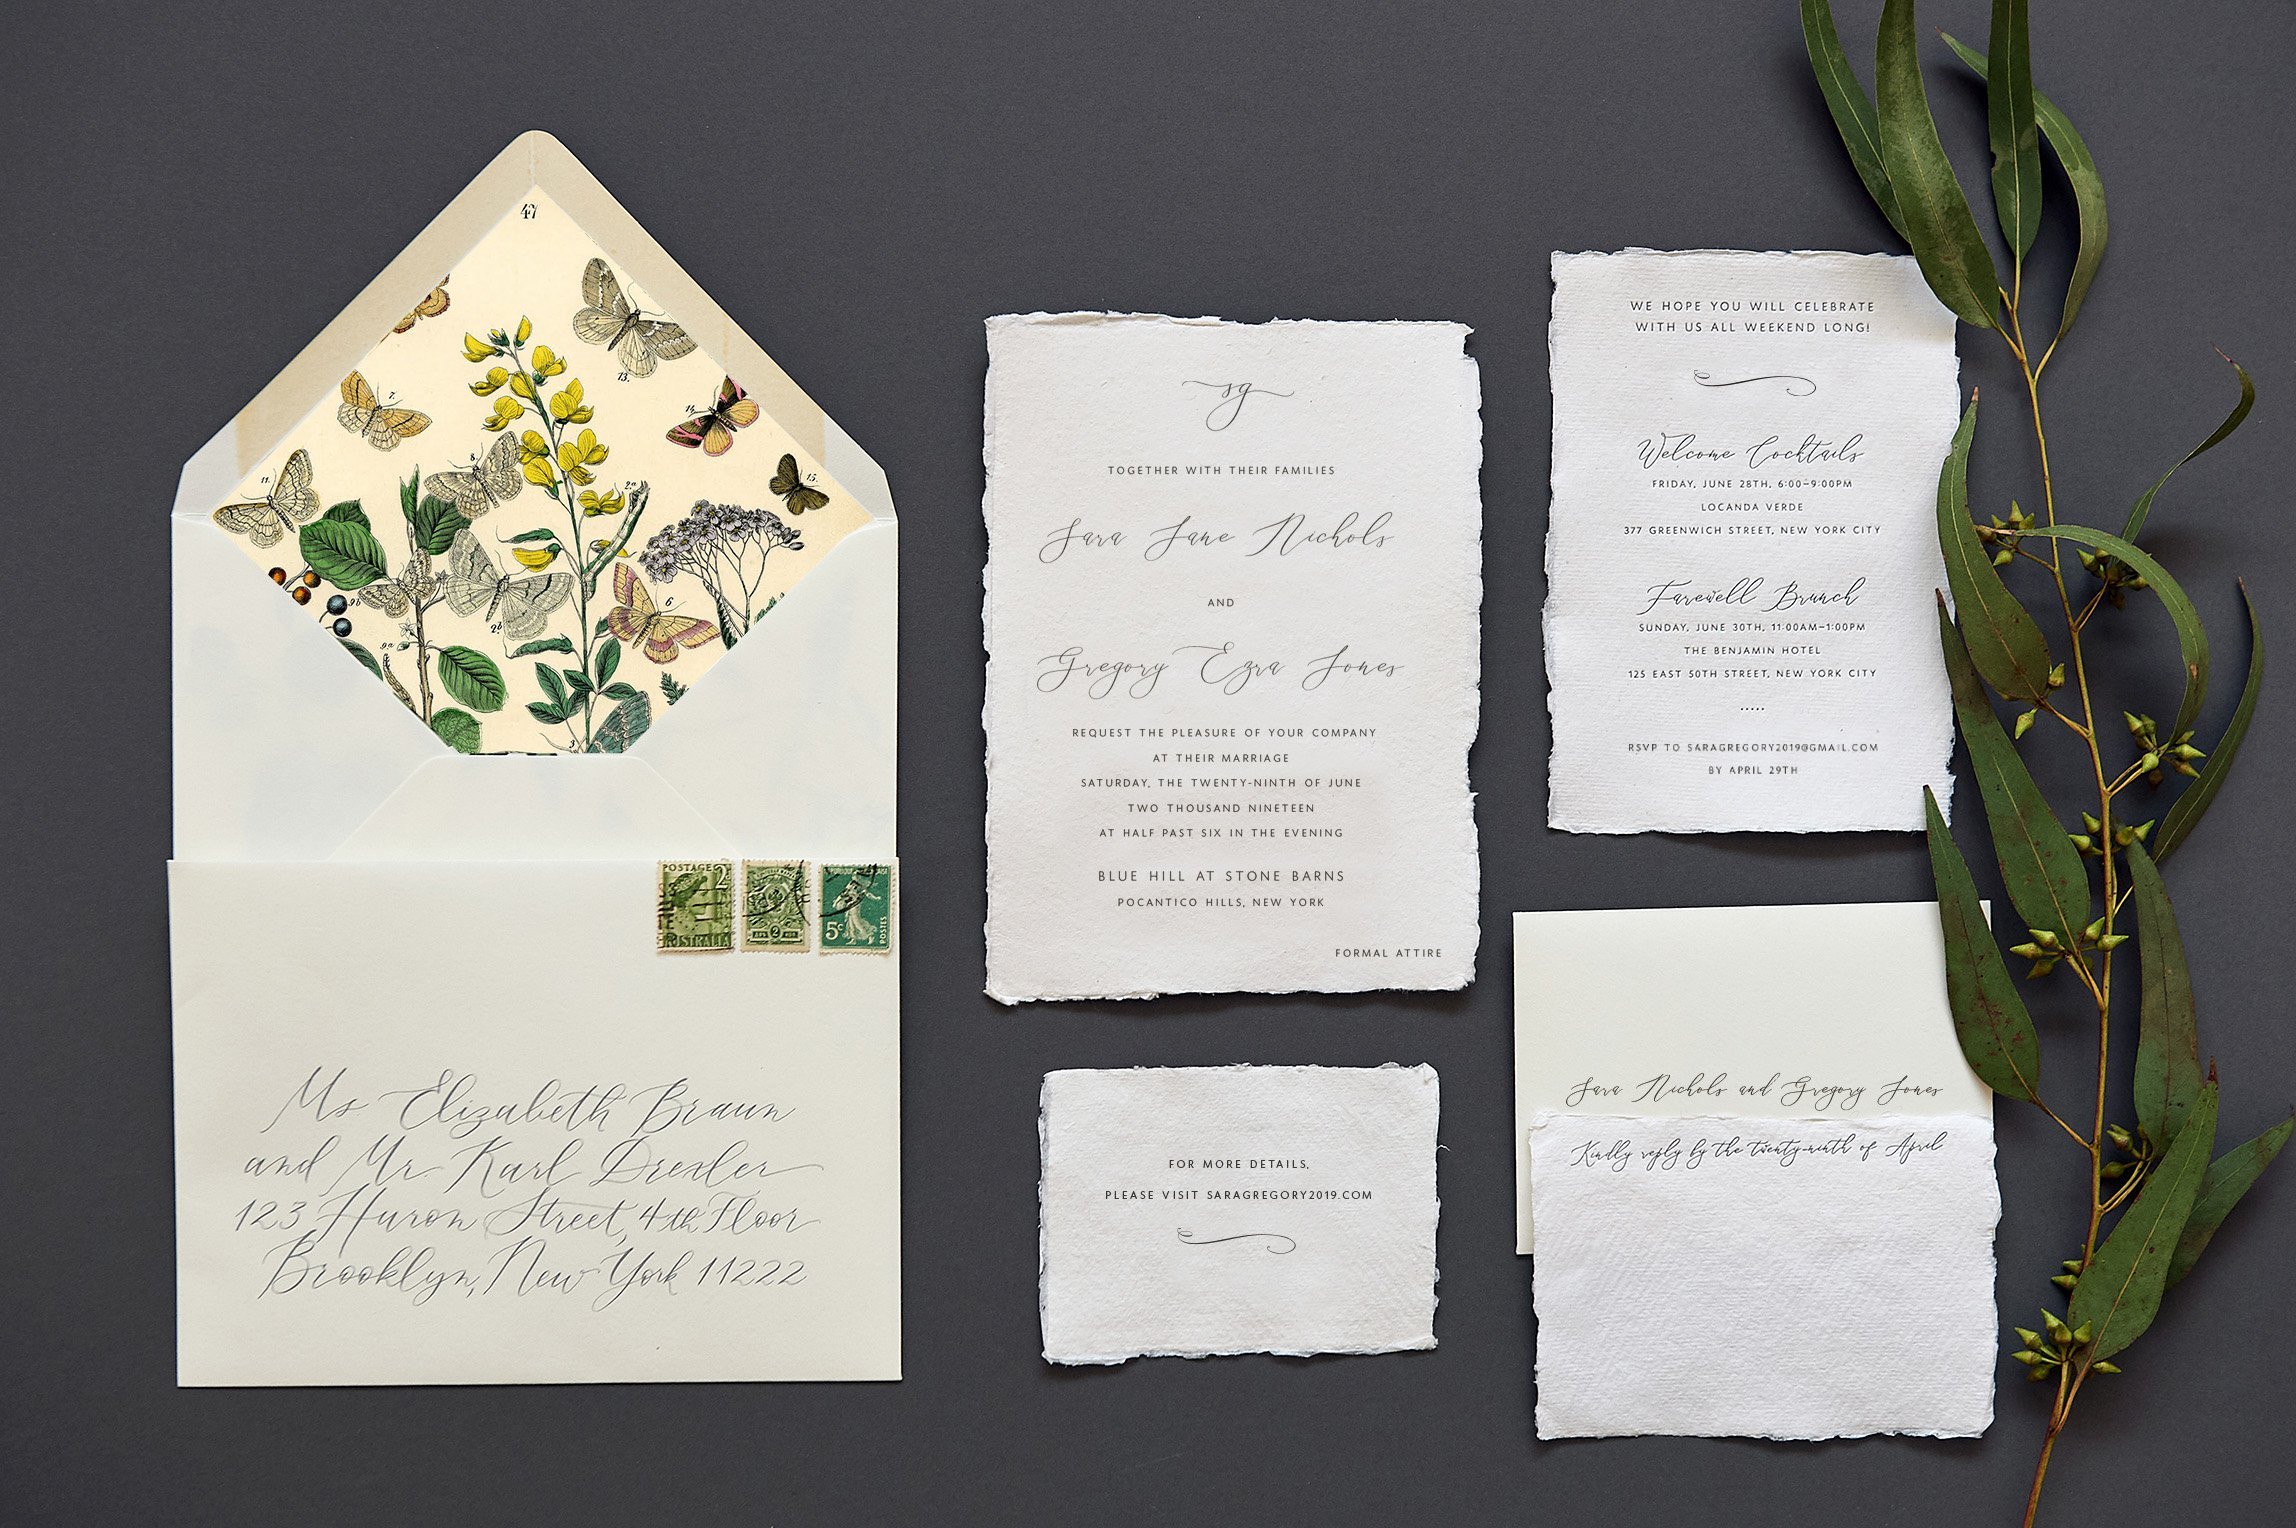 47
13.
7.
14.
8.
11.
15.
2a
9b
6
2b
9a
3
POSTAGE 2
AUSTRALIA
2
5c
POSTES
Ms Elizabeth Braun
and Mr. Karl Drexler
123 Huron Street, 4th Floor
Brooklyn, New York 11222
sg
TOGETHER WITH THEIR FAMILIES
Sara Jane Nichols
AND
Gregory Ezra Jones
REQUEST THE PLEASURE OF YOUR COMPANY
AT THEIR MARRIAGE
SATURDAY, THE TWENTY-NINTH OF JUNE
TWO THOUSAND NINETEEN
AT HALF PAST SIX IN THE EVENING
BLUE HILL AT STONE BARNS
POCANTICO HILLS, NEW YORK
FORMAL ATTIRE
FOR MORE DETAILS,
PLEASE VISIT SARAGREGORY2019.COM
WE HOPE YOU WILL CELEBRATE
WITH US ALL WEEKEND LONG!
Welcome Cocktails
FRIDAY, JUNE 28TH, 6:00–9:00PM
LOCANDA VERDE
377 GREENWICH STREET, NEW YORK CITY
Farewell Brunch
SUNDAY, JUNE 30TH, 11:00AM–1:00PM
THE BENJAMIN HOTEL
125 EAST 50TH STREET, NEW YORK CITY
.....
RSVP TO SARAGREGORY2019@GMAIL.COM
BY APRIL 29TH
Sara Nichols and Gregory Jones
Kindly reply by the twenty-ninth of April